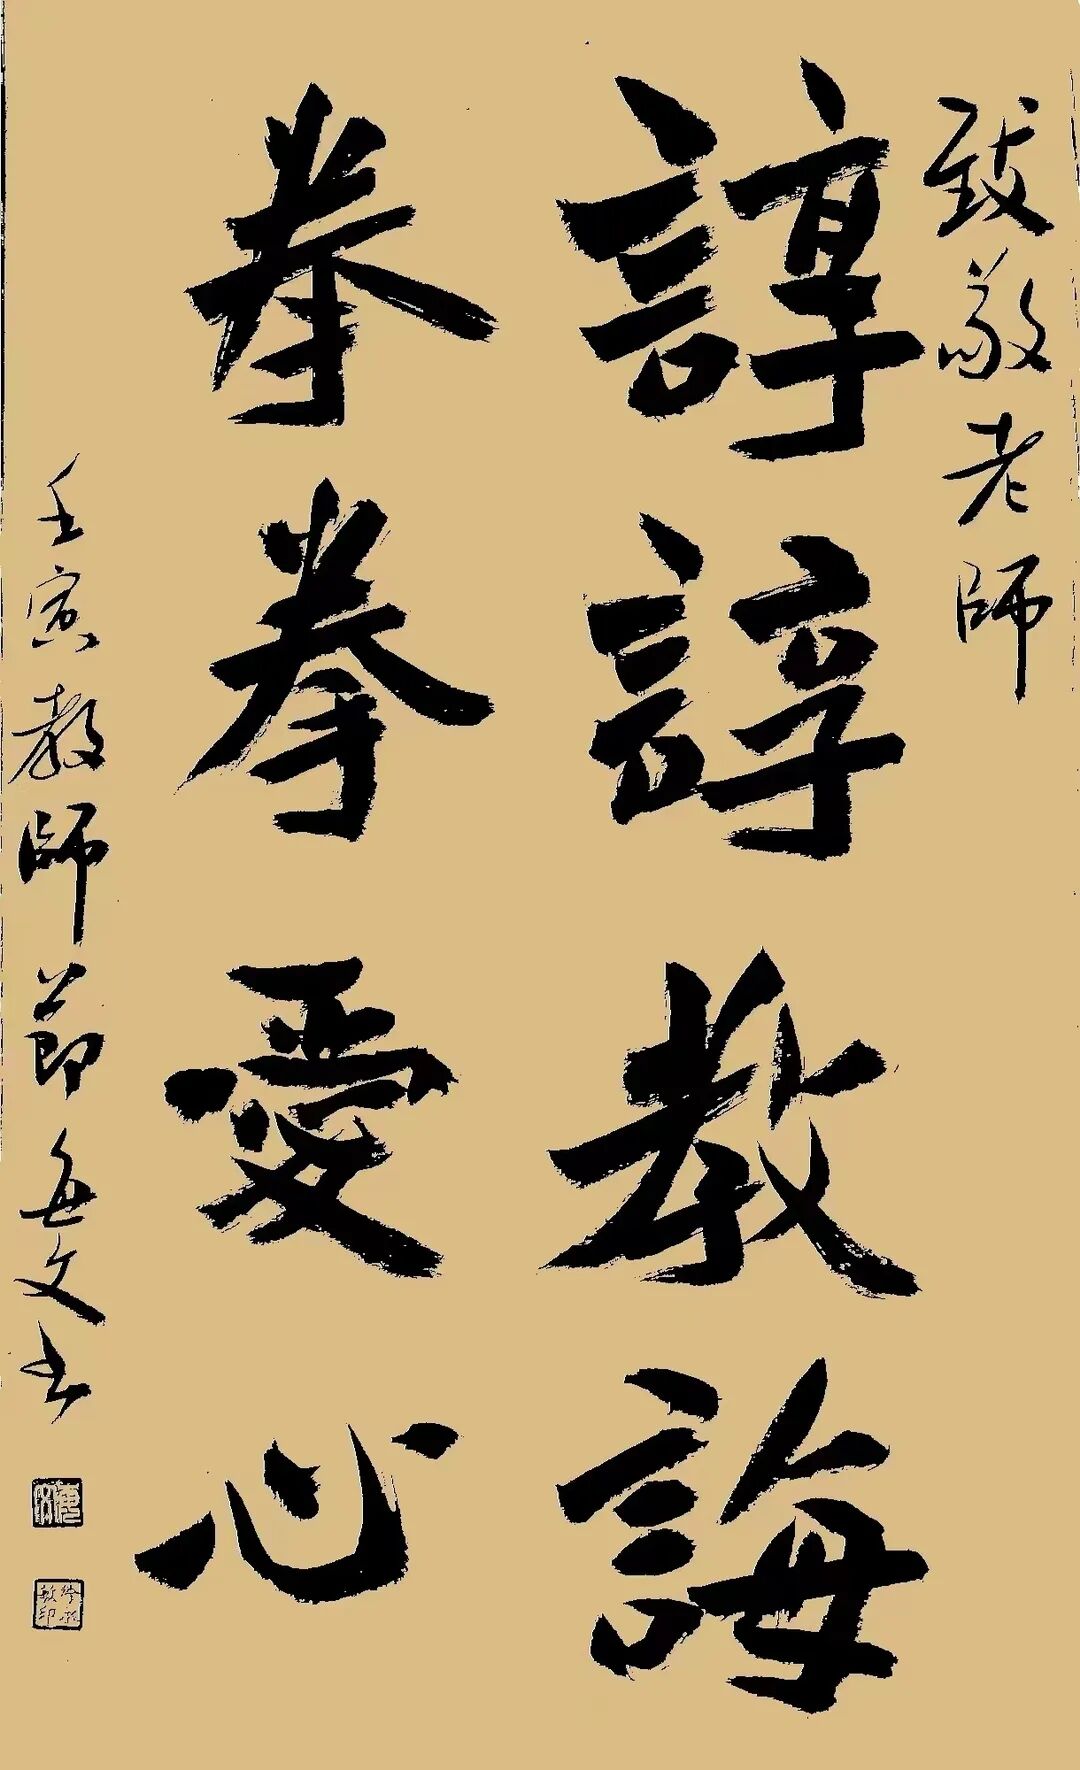 致敬老師
諄諄教誨
拳拳愛心
壬寅教師節無文书